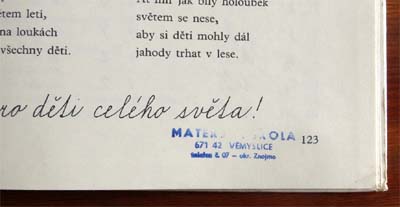 ětem leti,
na loukách
všechny děti.
Ať mír jak bílý holoubek
světem se nese,
aby si děti mohly dál
jahody trhat v lese.
ro děti celého světa!
MATEŘ ŠKOLA
671 42 VÉMYSLICE
telefon č. 07 – okr. Znojmo
123